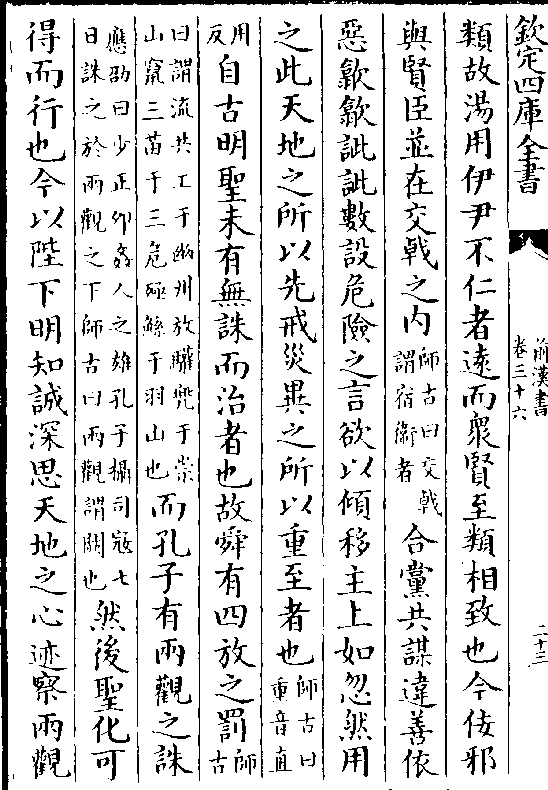 欽定四庫全書
前漢書
卷三十六
二十三
類故湯用伊尹不仁者遠而衆賢至類相致也今佞邪
與賢臣並在交㦸之內師古曰交㦸謂宿衛者合黨共謀違善依
惡歙歙訿訿數設危險之言欲以傾移主上如忽然用
之此天地之所以先戒災異之所以重至者也師古曰重音直
用反自古明聖未有無誅而治者也故舜有四放之罰師古
曰謂流共工于幽州放驩兜于崇山竄三苗于三危殛鯀于羽山也而孔子有兩觀之誅
應劭曰少正卯姦人之雄孔子攝司寇七日誅之於兩觀之下師古曰兩觀謂闕也然後聖化可
得而行也今以陛下明知誠深思天地之心迹察兩觀